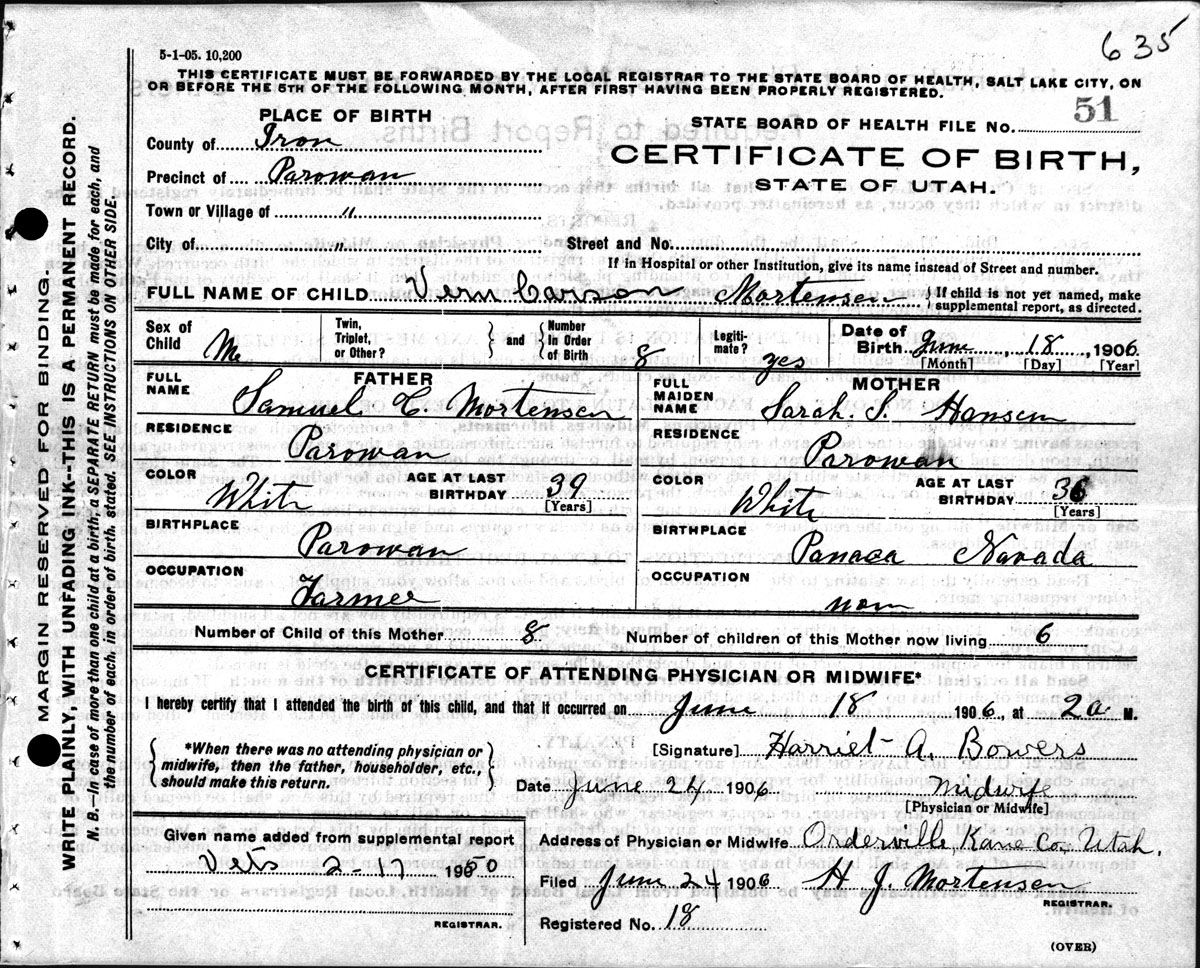 635
5-1-05. 10,200
THIS CERTIFICATE MUST BE FORWARDED BY THE LOCAL REGISTRAR TO THE STATE BOARD OF HEALTH, SALT LAKE CITY, ON
OR BEFORE THE 5TH OF THE FOLLOWING MONTH, AFTER FIRST HAVING BEEN PROPERLY REGISTERED.
PLACE OF BIRTH
County of Iron
Precinct of Parowan
Town or Village of "
City of "
STATE BOARD OF HEALTH FILE NO. 51
CERTIFICATE OF BIRTH,
STATE OF UTAH.
Street and No.
If in Hospital or other Institution, give its name instead of Street and number.
FULL NAME OF CHILD Vern Carson Mortensen { If child is not yet named, make supplemental report, as directed.
Sex of Child M
Twin, Triplet, or Other? } and { Number In Order of Birth 8
Legiti-mate? yes
Date of Birth June, 18, 1906
[Month] [Day] [Year]
FATHER
FULL NAME Samuel C. Mortensen
RESIDENCE Parowan
COLOR White AGE AT LAST BIRTHDAY 39 [Years]
BIRTHPLACE Parowan
OCCUPATION Farmer
MOTHER
FULL MAIDEN NAME Sarah. S. Hansen
RESIDENCE Parowan
COLOR White AGE AT LAST BIRTHDAY 36 [Years]
BIRTHPLACE Panaca Navada
OCCUPATION
Number of Child of this Mother 8 Number of children of this Mother now living 6
CERTIFICATE OF ATTENDING PHYSICIAN OR MIDWIFE*
I hereby certify that I attended the birth of this child, and that it occurred on June 18 1906, at 2 a M.
{ *When there was no attending physician or midwife, then the father, householder, etc., should make this return. }
[Signature] Harriet A. Bowers
Date June 24 1906 Midwife
[Physician or Midwife]
Given name added from supplemental report
Vets 2-17 1950
REGISTRAR.
Address of Physician or Midwife Orderville Kane Co, Utah.
Filed June 24 1906 H J. Mortensen
REGISTRAR.
Registered No. 18
(OVER)
MARGIN RESERVED FOR BINDING.
WRITE PLAINLY, WITH UNFADING INK--THIS IS A PERMANENT RECORD.
N. B.--In case of more than one child at a birth, a SEPARATE RETURN must be made for each, and
the number of each, in order of birth, stated. SEE INSTRUCTIONS ON OTHER SIDE.